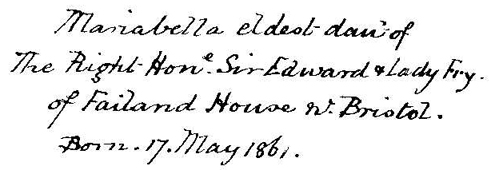 Mariabella eldest dau<sup>r</sup> of
The Right Hon<sup>e</sup>. Sir Edward & Lady Fry.
of Failand House nr. Bristol.
Born. 17. May 1861.